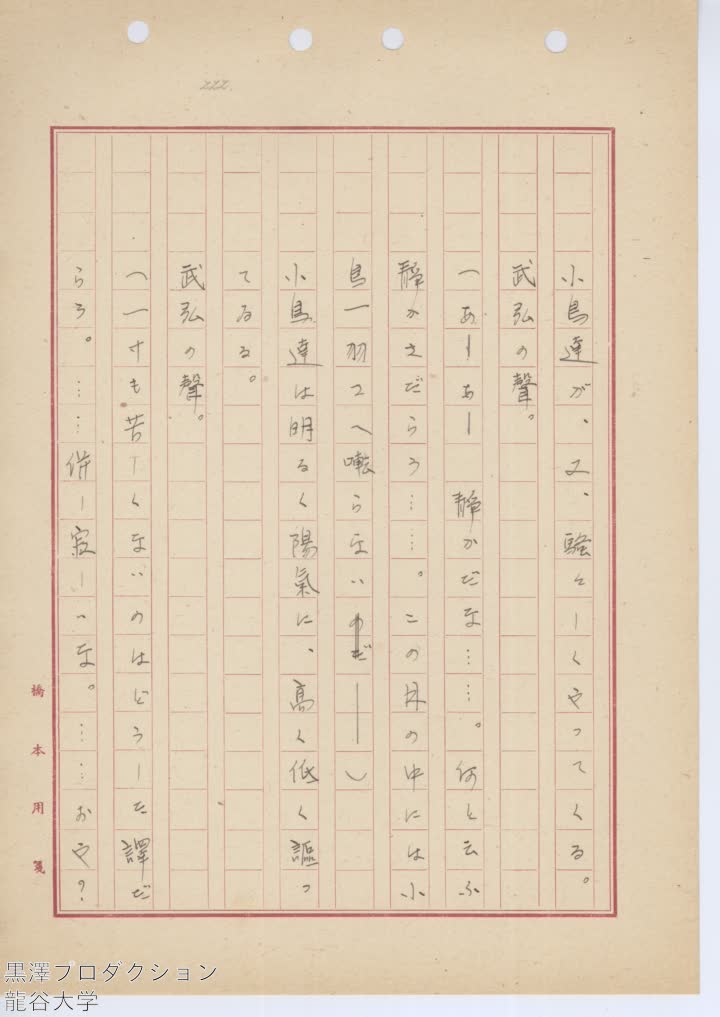 222.
小鳥達が、又、騒々しくやってくる。
武弘の聲。
（あーあー　静かだな……。何と云ふ
静かさだらう……。この林の中には小
鳥一羽さへ囀らないのだ――）
小鳥達は明るく陽氣に、高く低く謳っ
てゐる。
武弘の聲。
（一寸も苦しくないのはどうした譯だ
らう。……併し寂しいな。……おや？
橋本用箋
黒澤プロダクション
龍谷大学